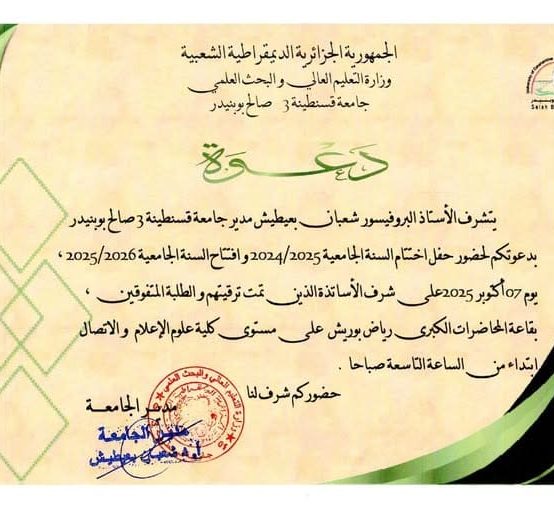 الجمهورية الجزائرية الديمقراطية الشعبية
وزارة التعليم العالي والبحث العلمي
جامعة قسنطينة 3 صالح بوبنيدر
دعوة
يتشرف الأستاذ البروفيسور شعبان بعيطيش مدير جامعة قسنطينة 3 صالح بوبنيدر
بدعوتكم لحضور حفل اختتام السنة الجامعية 2024/2025 و افتتاح السنة الجامعية 2025/2026 ،
يوم 07 أكتوبر 2025 على شرف الأساتذة الذين تمت ترقيتهم و الطلبة المتفوقين ،
بقاعة المحاضرات الكبرى رياض بوريش على مستوى كلية علوم الإعلام و الاتصال
ابتداء من الساعة التاسعة صباحا .
حضوركم شرف لنا
مدير الجامعة
مدير الجامعة
أ.د شعبان بعيطيش